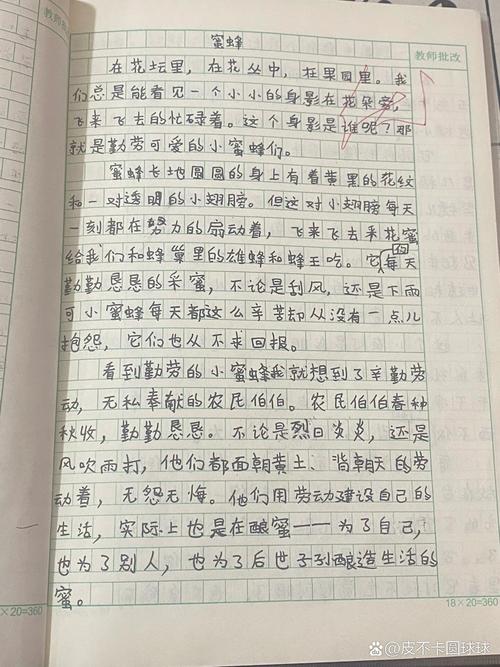 教师批改
蜜蜂
教师批改
在花坛里，在花丛中，在果园里。我
们总是能看见一个小小的身影在花朵旁，
飞来飞去的忙碌着。这个身影是谁呢？那
就是勤劳可爱的小蜜蜂们。
蜜蜂长地圆圆的身上有着黄黑的花纹
和一对透明的小翅膀。但这对小翅膀每天
一刻都在努力的扇动着，飞来飞去采花蜜
给我们和蜂巢里的雄蜂和蜂王吃。它们每天
勤勤恳恳的采蜜，不论是刮风，还是下雨
可小蜜蜂每天都这么辛苦却从没有一点儿
抱怨，它们也从不求回报。
看到勤劳的小蜜蜂我就想到了辛勤劳
动，无私奉献的农民伯伯。农民伯伯春种
秋收，勤勤恳恳。不论是烈日炎炎，还是
风吹雨打，他们都面朝黄土、背朝天的劳
动着，无怨无悔。他们用劳动建设自己的
生活，实际上也是在酿蜜——为了自己，
也为了别人，也为了后世子孙酿造生活的
蜜。
×20=360
18×20=360
百家号/皮不卡圆球球